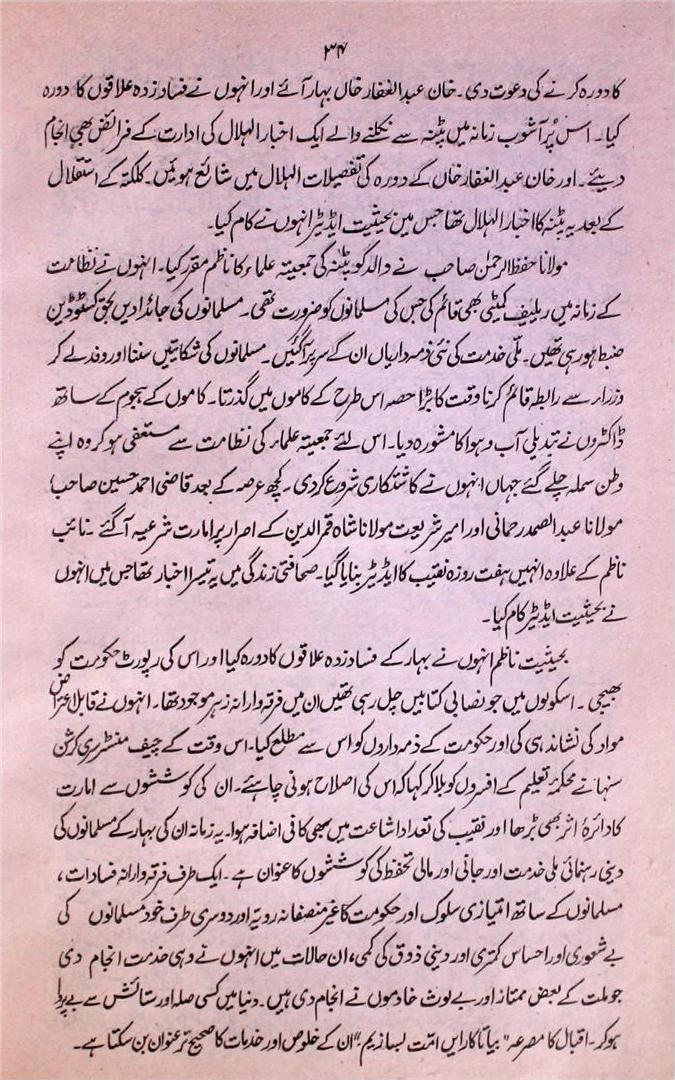 ۳۴
کا دورہ کرنے کی دعوت دی۔ خان عبدالغفار خاں بہار آئے اور انہوں نے فساد زدہ علاقوں کا دورہ
کیا۔ اس پُرآشوب زمانہ میں پٹنہ سے نکلنے والے ایک اخبار الہلال کی ادارت کے فرائض بھی انجام
دیئے۔ اور خان عبدالغفار خاں کے دورہ کی تفصیلات الہلال میں شائع ہوئیں۔ کلکتہ کے استقلال
کے بعد یہ پٹنہ کا اخبار الہلال تھا جس میں بحیثیت ایڈیٹر انہوں نے کام کیا۔
مولانا حفظ الرحمٰن صاحب نے والد کو پٹنہ کی جمعیتہ علماء کا ناظم مقرر کیا۔ انہوں نے نظامت
کے زمانہ میں ریلیف کمیٹی بھی قائم کی جس کی مسلمانوں کو ضرورت تھی۔ مسلمانوں کی جائدادیں بحق کسٹوڈین
ضبط ہو رہی تھیں۔ ملّی خدمت کی نئی ذمہ داریاں ان کے سر پر آگئیں۔ مسلمانوں کی شکایتیں سننا اور وفد لے کر
وزراء سے رابطہ قائم کرنا وقت کا بڑا حصہ اس طرح کے کاموں میں گذرتا۔ کاموں کے ہجوم کے ساتھ
ڈاکٹروں نے تبدیلی آب و ہوا کا مشورہ دیا۔ اس لئے جمعیتہ علماء کی نظامت سے مستعفی ہو کر وہ اپنے
وطن سملہ چلے گئے جہاں انہوں نے کاشتکاری شروع کر دی۔ کچھ عرصہ کے بعد قاضی احمد حسین صاحب،
مولانا عبدالصمد رحمانی اور امیر شریعت مولانا شاہ قمرالدین کے اصرار پر امارت شرعیہ آگئے۔ نائب
ناظم کے علاوہ انہیں ہفت روزہ نقیب کا ایڈیٹر بنایا گیا۔ صحافتی زندگی میں یہ تیسرا اخبار تھا جس میں انہوں
نے بحیثیت ایڈیٹر کام کیا۔
بحیثیت ناظم انہوں نے بہار کے فساد زدہ علاقوں کا دورہ کیا اور اس کی رپورٹ حکومت کو
بھیجی۔ اسکولوں میں جو نصابی کتابیں چل رہی تھیں ان میں فرقہ وارانہ زہر موجود تھا۔ انہوں نے قابل اعتراض
مواد کی نشاندہی کی اور حکومت کے ذمہ داروں کو اس سے مطلع کیا۔ اس وقت کے چیف منسٹر سری کرشن
سنہا نے محکمۂ تعلیم کے افسروں کو بلا کر کہا کہ اس کی اصلاح ہونی چاہئے۔ ان کی کوششوں سے امارت
کا دائرۂ اثر بھی بڑھا اور نقیب کی تعداد اشاعت میں بھی کافی اضافہ ہوا۔ یہ زمانہ ان کی بہار کے مسلمانوں کی
دینی رہنمائی ملی خدمت اور جانی اور مالی تحفظ کی کوششوں کا عنوان ہے۔ ایک طرف فرقہ وارانہ فسادات،
مسلمانوں کے ساتھ امتیازی سلوک اور حکومت کا غیر منصفانہ رویّہ اور دوسری طرف خود مسلمانوں کی
بے شعوری اور احساس کمتری اور دینی ذوق کی کمی، ان حالات میں انہوں نے وہی خدمت انجام دی
جو ملت کے بعض ممتاز اور بے لوث خادموں نے انجام دی ہیں۔ دنیا میں کسی صلہ اور ستائش سے بے پروا
ہو کر۔ اقبال کا مصرعہ "بیا تا کار ایں امّت بسازیم" ان کے خلوص اور خدمات کا صحیح تر عنوان بن سکتا ہے۔